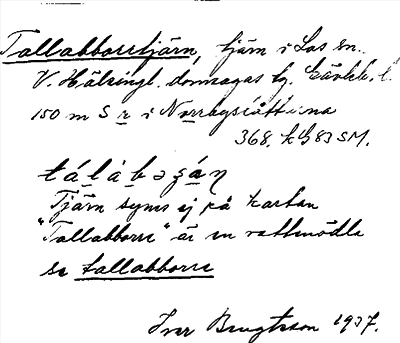 Tallabborrtjärn, tjärn i Los sn.
V. Hälsingl. domsagas hg. Gävleb. l.
150 m S r i Norrågslåttarna
368, kB 83 SM.
tálábǝrán
Tjärn syns ej på kartan
"Tallabborre" är en vattenödla
se tallabborre
Iver Bengtsson 1937.